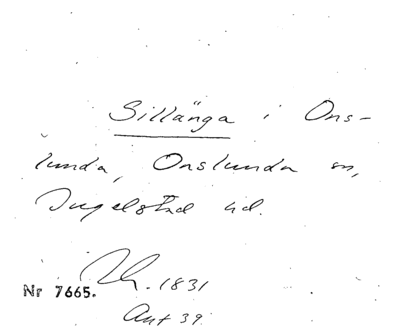 Sillänga i Ons-
lunda, Onslunda sn,
Ingelstad hd.
1831
Nr 7665.
Ant 39